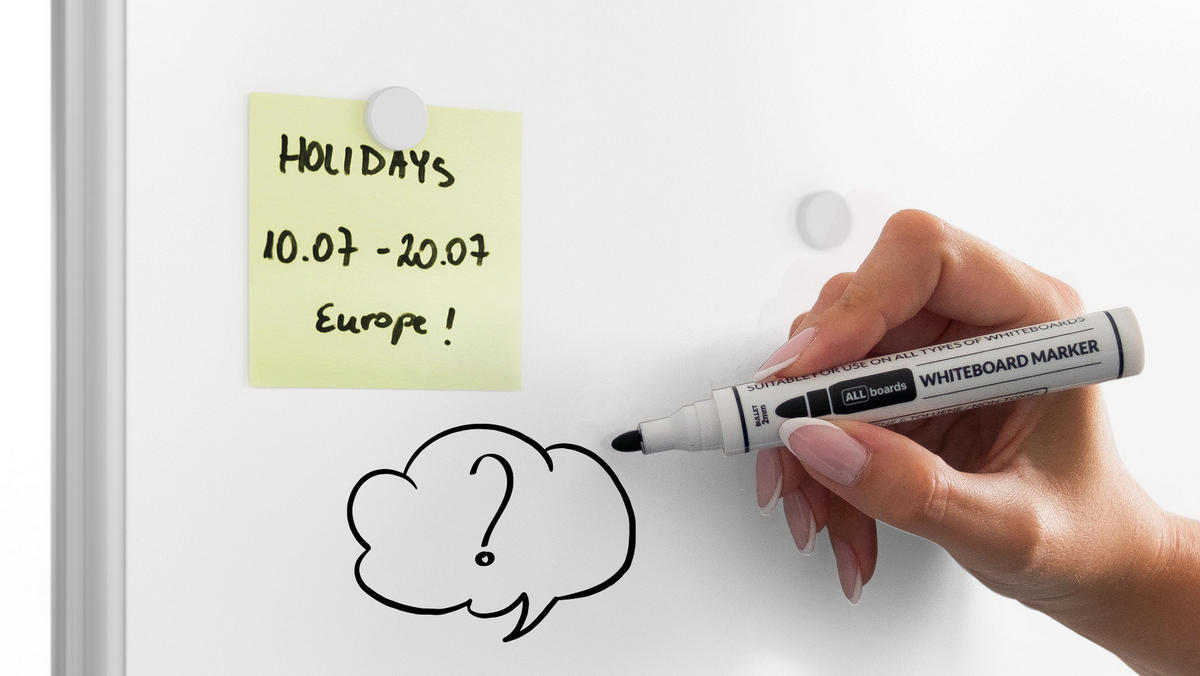 HOLIDAYS
10.07 - 20.07
Europe !
?
SUITABLE FOR USE ON ALL TYPES OF WHITEBOARDS
BULLET
2mm
ALL boards
WHITEBOARD MARKER